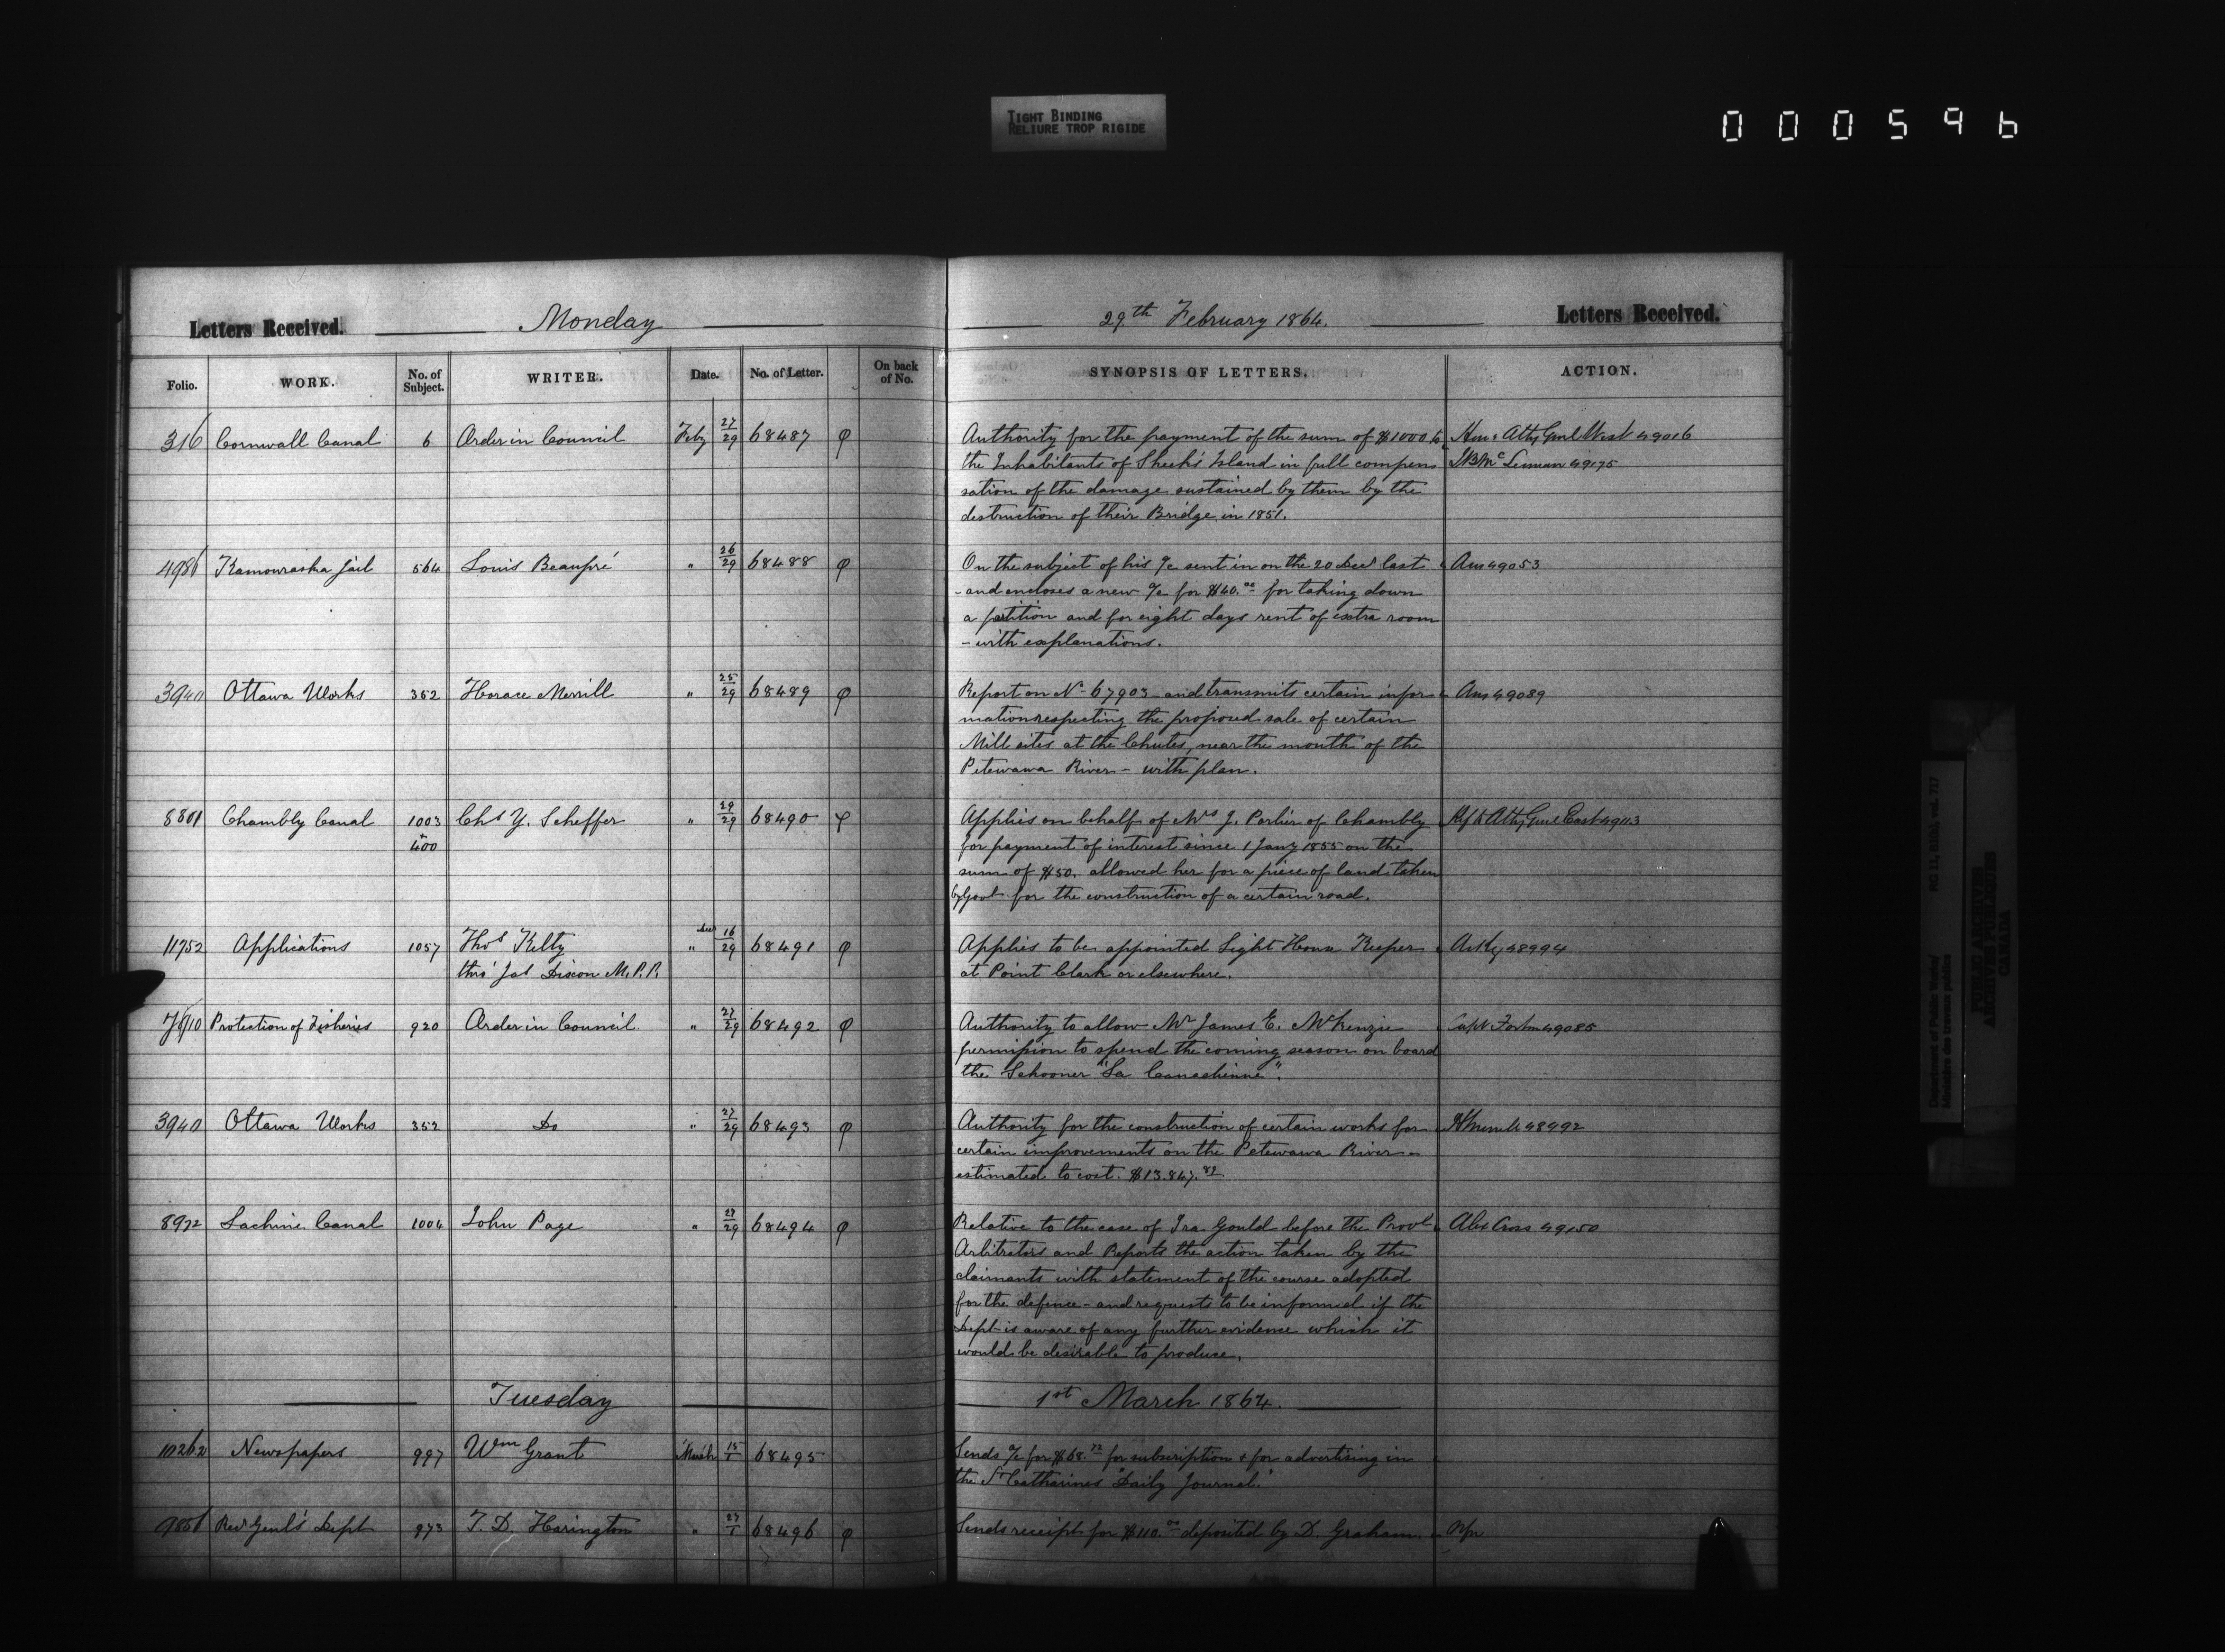 TIGHT BINDING
RELIURE TROP RIGIDE
000596
Letters Received. Monday 29th February 1864. Letters Received.
Folio. WORK. No. of Subject. WRITER. Date. No. of Letter. On back of No. SYNOPSIS OF LETTERS. ACTION.
316 Cornwall Canal 6 Order in Council Feby 27/29 68487 φ Authority for the payment of the sum of $1000 to Hon: Atty Genl West 49016
the Inhabitants of Sheek's Island in full compen 49175
sation of the damage sustained by them by the
destruction of their Bridge in 1851.
4986 Kamouraska Jail 564 Louis Beaupré " 26/29 68488 φ On the subject of his a/c sent in on the 20 Decr last Ans 49053
- and encloses a new a/c for $40.00 for taking down
a partition and for eight days rent of extra room
- with explanations.
3940 Ottawa Works 352 Horace Merrill " 25/29 68489 φ Report on No 67903 and transmits certain infor Ans 49089
mation respecting the proposed sale of certain
Mill sites at the Chutes, near the mouth of the
Petewawa River - with plan.
8801 Chambly Canal 1003 Chs Y. Scheffer " 29/29 68490 φ Applies on behalf of Mrs J. Parlier of Chambly Ref to Atty Genl East 49113
+
400 for payment of interest since 1 Jany 1855 on the
sum of $50. allowed her for a piece of land taken
by Govt for the construction of a certain road.
11752 Applications 1057 Thos Kelty Decr " 16/29 68491 φ Applies to be appointed Light House Keeper Ackg 48994
thro' Jas Dixon M.P.P. at Point Clark or elsewhere.
7810 Protection of Fisheries 920 Order in Council " 27/29 68492 φ Authority to allow Mr James E. McKenzie Capt Fortin 49085
permission to spend the coming season on board
the Schooner "La Canadienne".
3940 Ottawa Works 352 Do " 27/29 68493 φ Authority for the construction of certain works for H Merrill 48992
certain improvements on the Petewawa River -
estimated to cost. $13.847.89
8972 Lachine Canal 1004 John Page " 27/29 68494 φ Relative to the case of Ira Gould before the Provl Alex Cross 49150
Arbitrators and Reports the action taken by the
claimants with statement of the course adopted
for the defence - and requests to be informed if the
Dept is aware of any further evidence which it
would be desirable to produce.
Tuesday 1st March 1864.
10262 Newspapers 997 Wm Grant March 15/1 68495 Sends a/c for $68.72 for subscription + for advertising in
the St Catharines "Daily Journal."
9856 Recr Genl's Dept 973 T. D. Harington " 27/1 68496 φ Sends receipt for $110.00 deposited by D. Graham.
Department of Public Works/
Ministère des travaux publics
RG 11, B1(b), vol. 717
PUBLIC ARCHIVES
ARCHIVES PUBLIQUES
CANADA